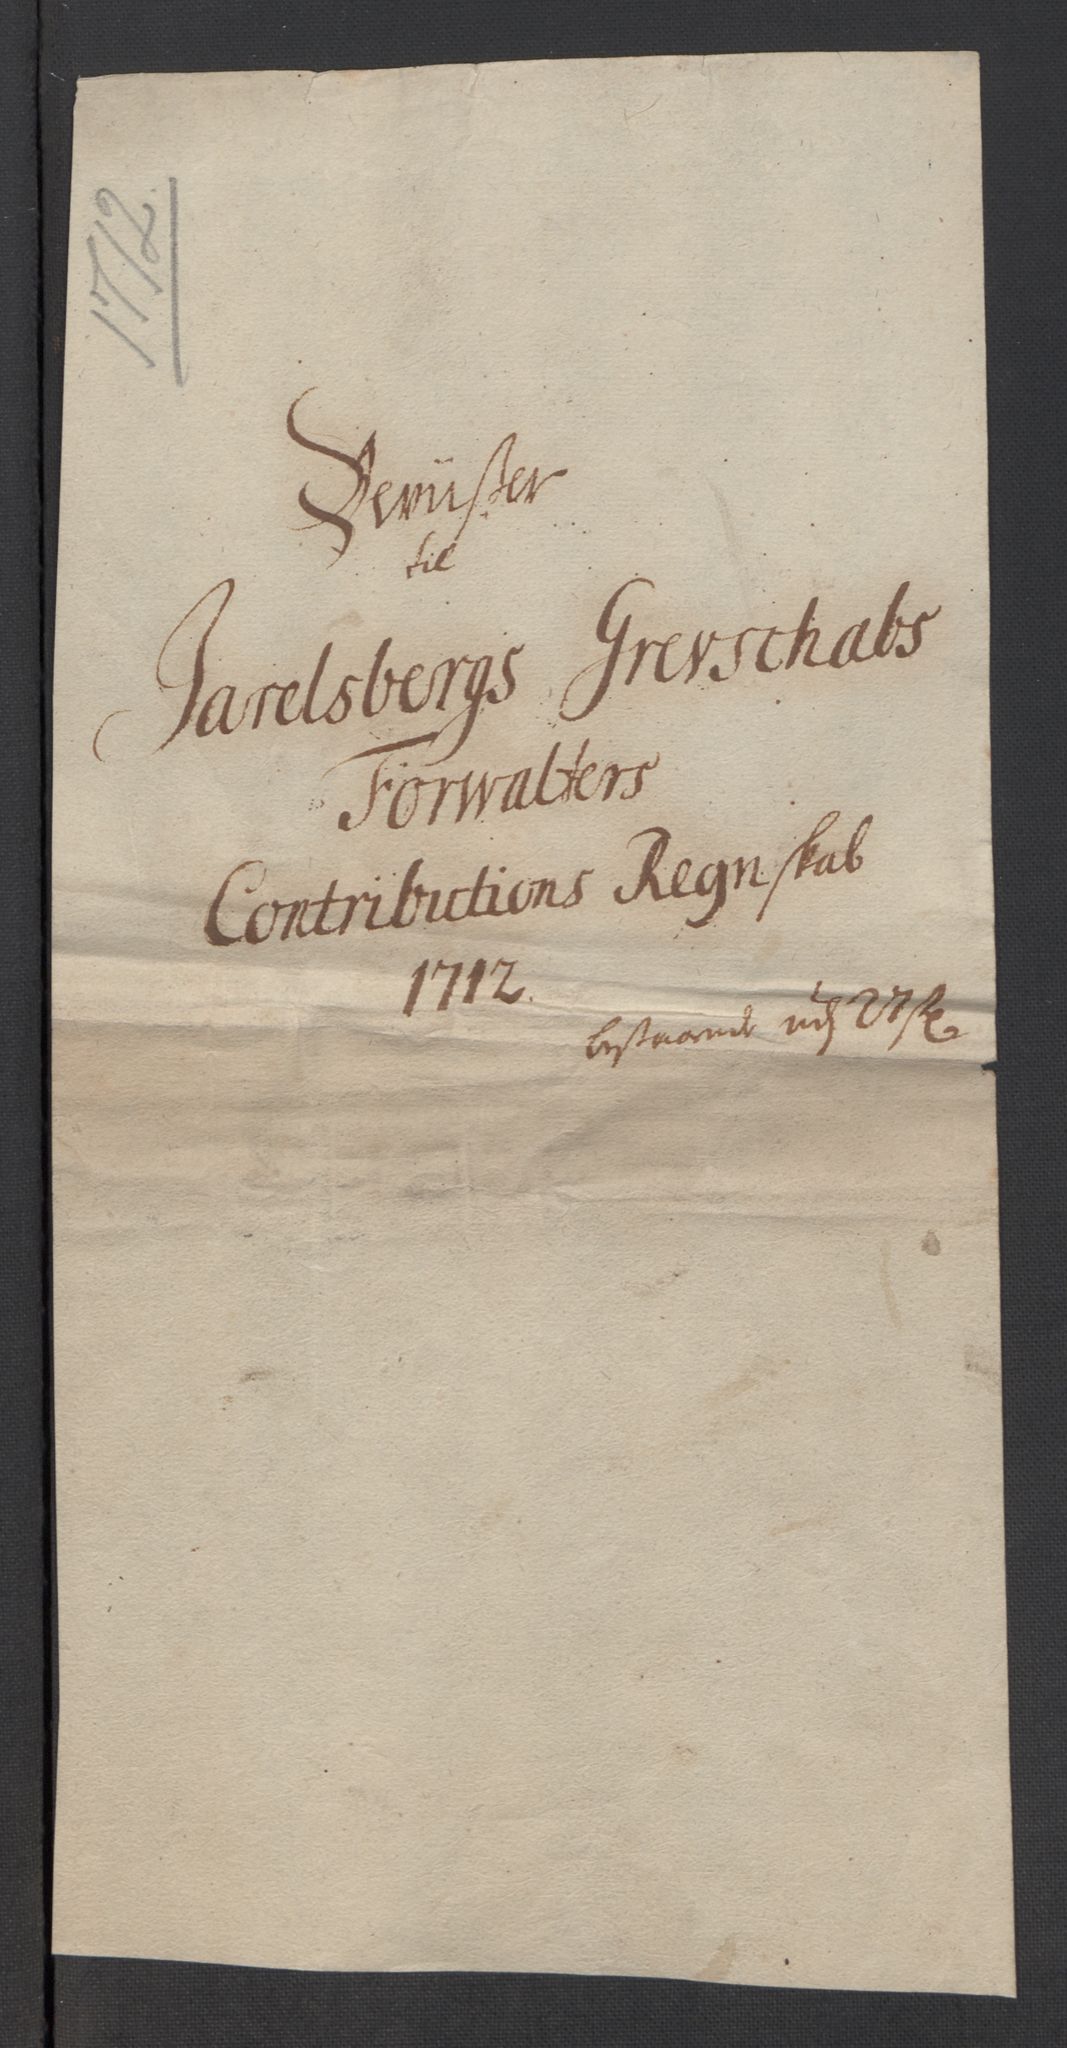 1712.
Bewüster
til
Jarelsbergs Grevschabs
Forwalters
Contributions Regnskab
1712.
bestaaende udj 27 st